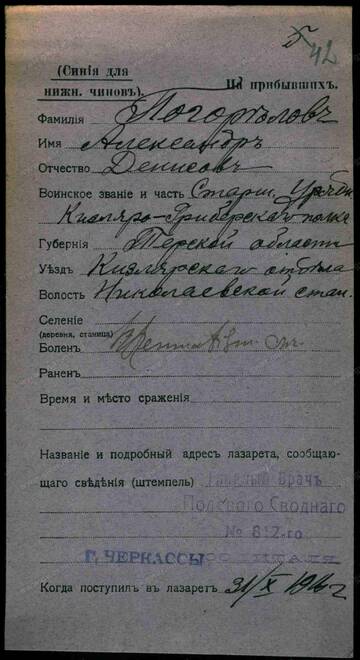 42
(Синія для
нижн. чиновъ).
На прибывшихъ.
Фамилія Погорѣловъ
Имя Александръ
Отчество Денисовъ
Воинское званіе и часть Старш. Урядн.
Кизляро-Гребенскаго полка
Губернія Терской области
Уѣздъ Кизлярскаго отдѣла
Волость Николаевской стан.
Селеніе
(деревня, станица)
Боленъ
Раненъ
Время и мѣсто сраженія
Названіе и подробный адресъ лазарета, сообщаю-
щаго свѣдѣнія (штемпель) Главный Врачъ
Полевого Своднаго
№ 812-го
Г. ЧЕРКАССЫ ГОСПИТАЛЯ
Когда поступилъ въ лазаретъ 31/X 1916 г.